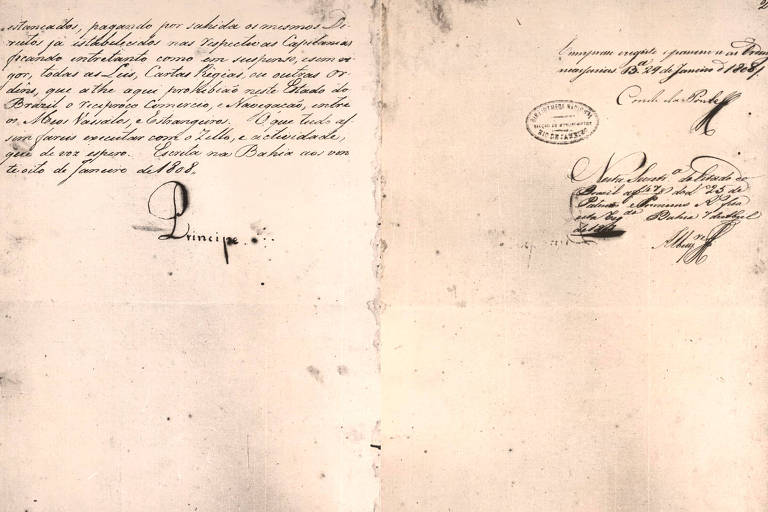 estancados, pagando por sahida os mesmos Di-
reitos já estabelecidos nas respectivas Capitanias
ficando entretanto como em suspenso, e sem vi-
gor, todas as Leis, Cartas Regias, ou outras Or-
dens, que athe aqui prohibião neste Estado do
Brazil o reciproco Comercio, e Navegacão, entre
os Meos Vassalos, e Estrangeiros. O que tudo as-
sim fareis executar com o Zello, e actividade,
que de voz espero. Escrita na Bahia aos vin-
te oito de Janeiro de 1808.
Principe
2
registe e as Ordens
necessarias Bª 29 de Janeiro d 1808
Conde da Ponte
BIBLIOTHECA NACIONAL
RIO DE JANEIRO
do Estado do
Brazil 25 de
Bahia 7 de Abril
de